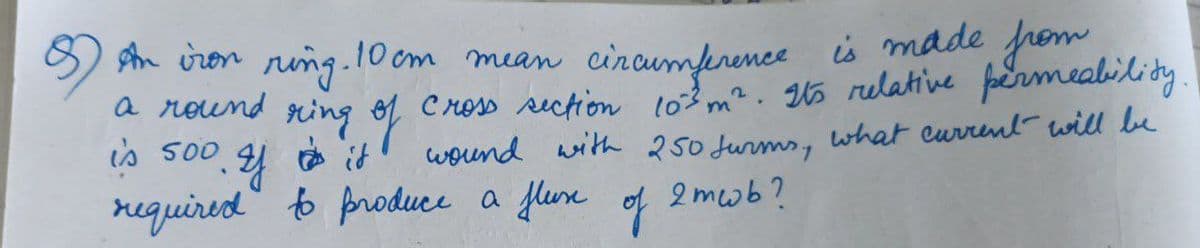 8) An iron ring. 10 cm mean circumference is made from
a round ring of cross section 10⁻³ m². Its relative permeability.
is 500. If is it wound with 250 turms, what current will be
required to produce a flux of 2 mwb?